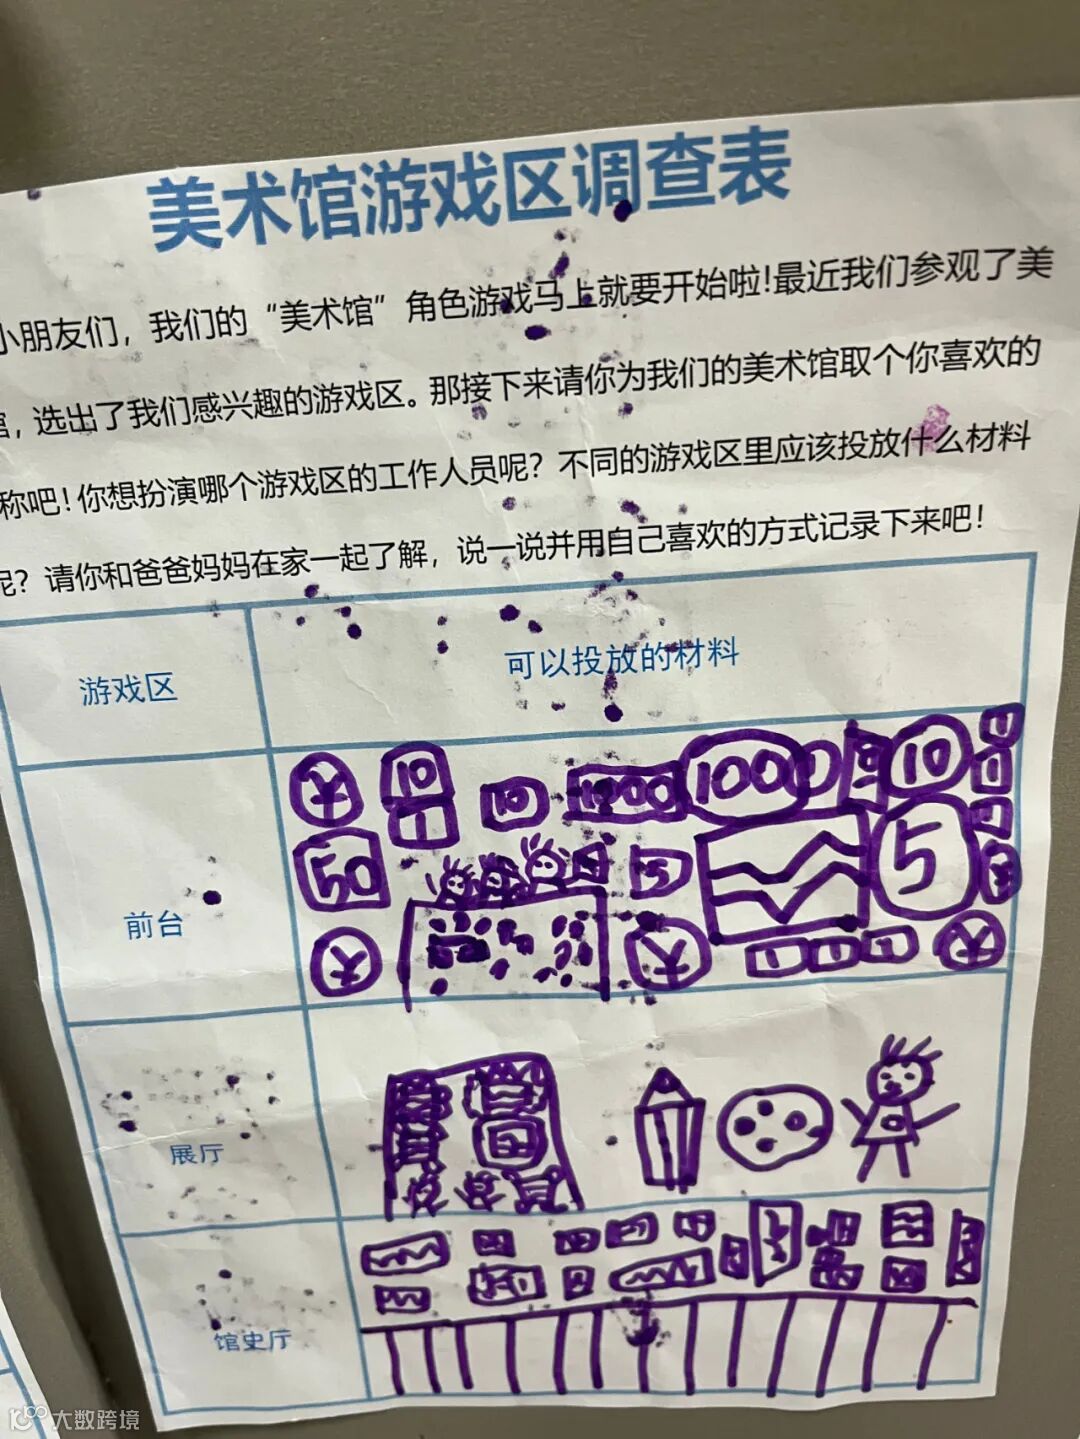 美术馆游戏区调查表
小朋友们，我们的“美术馆”角色游戏马上就要开始啦！最近我们参观了美
馆，选出了我们感兴趣的游戏区。那接下来请你为我们的美术馆取个你喜欢的
称吧！你想扮演哪个游戏区的工作人员呢？不同的游戏区里应该投放什么材料
呢？请你和爸爸妈妈在家一起了解，说一说并用自己喜欢的方式记录下来吧！
游戏区 可以投放的材料
前台
10 10 1000 1000 10
1
50 5 5
展厅
馆史厅
大数跨境